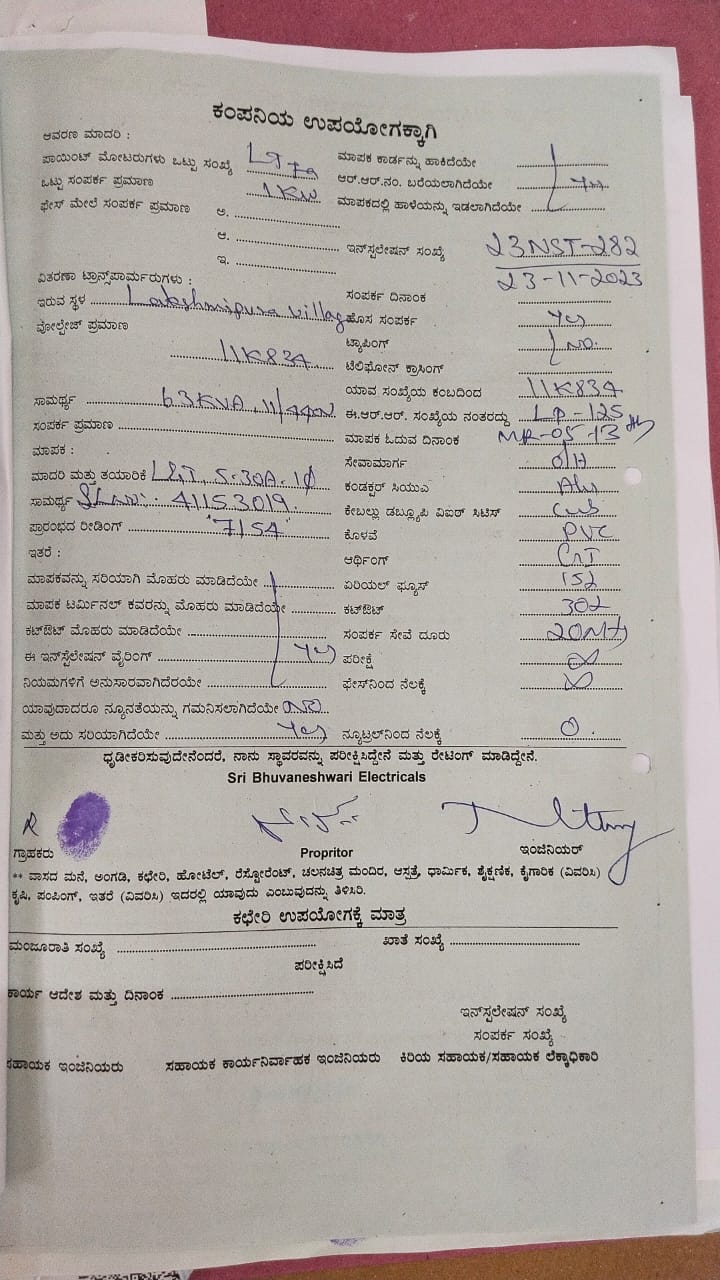 ಕಂಪನಿಯ ಉಪಯೋಗಕ್ಕಾಗಿ
ಆವರಣ ಮಾದರಿ :
ಪಾಯಿಂಟ್ ಮೋಟರುಗಳು ಒಟ್ಟು ಸಂಖ್ಯೆ ಮಾಪಕ ಕಾರ್ಡನ್ನು ಹಾಕಿದೆಯೇ
ಒಟ್ಟು ಸಂಪರ್ಕ ಪ್ರಮಾಣ 1KW ಆರ್.ಆರ್.ನಂ. ಬರೆಯಲಾಗಿದೆಯೇ Yes
ಫೇಸ್ ಮೇಲೆ ಸಂಪರ್ಕ ಪ್ರಮಾಣ ಅ. ಮಾಪಕದಲ್ಲಿ ಹಾಳೆಯನ್ನು ಇಡಲಾಗಿದೆಯೇ
ಆ. ಇನ್‌ಸ್ಪಲೇಷನ್ ಸಂಖ್ಯೆ 23NST-282
ಇ. 23-11-2023
ವಿತರಣಾ ಟ್ರಾನ್ಸ್‌ಪಾರ್ಮರುಗಳು : ಸಂಪರ್ಕ ದಿನಾಂಕ
ಇರುವ ಸ್ಥಳ Lakshmipura village ಹೊಸ ಸಂಪರ್ಕ Yes
ವೋಲ್ಟೇಜ್ ಪ್ರಮಾಣ ಟ್ಯಾಪಿಂಗ್ NO.
11K834 ಟೆಲಿಫೋನ್ ಕ್ರಾಸಿಂಗ್
ಯಾವ ಸಂಖ್ಯೆಯ ಕಂಬದಿಂದ 11K834
ಸಾಮರ್ಥ್ಯ 63KVA, 11/440V ಈ.ಆರ್.ಆರ್. ಸಂಖ್ಯೆಯ ನಂತರದ್ದು LP-125
ಸಂಪರ್ಕ ಪ್ರಮಾಣ ಮಾಪಕ ಓದುವ ದಿನಾಂಕ MR-05-13
ಮಾಪಕ : ಸೇವಾಮಾರ್ಗ O/H
ಮಾದರಿ ಮತ್ತು ತಯಾರಿಕೆ L&T, 5-30A, 1Φ ಕಂಡಕ್ಟರ್ ಸಿಯುಎ Alu
ಸಾಮರ್ಥ್ಯ Sl.No: 41153019. ಕೇಬಲ್ಲು ಡಬ್ಲ್ಯೂಪಿ ವಿಐಆರ್ ಸಿಟಿಸ್
ಪ್ರಾರಂಭದ ರೀಡಿಂಗ್ "7154" ಕೊಳವೆ PVC
ಇತರೆ : ಆರ್ಥಿಂಗ್
ಮಾಪಕವನ್ನು ಸರಿಯಾಗಿ ಮೊಹರು ಮಾಡಿದೆಯೇ ಏರಿಯಲ್ ಫ್ಯೂಸ್
ಮಾಪಕ ಟರ್ಮಿನಲ್ ಕವರನ್ನು ಮೊಹರು ಮಾಡಿದೆಯೇ ಕಟ್‌ಔಟ್
ಕಟ್‌ಔಟ್ ಮೊಹರು ಮಾಡಿದೆಯೇ ಸಂಪರ್ಕ ಸೇವೆ ದೂರು 20Mt
ಈ ಇನ್‌ಸ್ಟೆಲೇಷನ್ ವೈರಿಂಗ್ Yes ಪರೀಕ್ಷೆ ∞
ನಿಯಮಗಳಿಗೆ ಅನುಸಾರವಾಗಿದೆರಯೇ ಫೇಸ್‌ನಿಂದ ನೆಲಕ್ಕೆ ∞
ಯಾವುದಾದರೂ ನ್ಯೂನತೆಯನ್ನು ಗಮನಿಸಲಾಗಿದೆಯೇ NO
ಮತ್ತು ಅದು ಸರಿಯಾಗಿದೆಯೇ Yes ನ್ಯೂಟ್ರಲ್‌ನಿಂದ ನೆಲಕ್ಕೆ 0.
ಧೃಡೀಕರಿಸುವುದೇನೆಂದರೆ, ನಾನು ಸ್ಥಾವರವನ್ನು ಪರೀಕ್ಷಿಸಿದ್ದೇನೆ ಮತ್ತು ರೇಟಿಂಗ್ ಮಾಡಿದ್ದೇನೆ.
Sri Bhuvaneshwari Electricals
ಗ್ರಾಹಕರು Propritor ಇಂಜಿನಿಯರ್
** ವಾಸದ ಮನೆ, ಅಂಗಡಿ, ಕಛೇರಿ, ಹೋಟೆಲ್, ರೆಸ್ಟೋರೆಂಟ್, ಚಲನಚಿತ್ರ ಮಂದಿರ, ಆಸ್ಪತ್ರೆ, ಧಾರ್ಮಿಕ, ಶೈಕ್ಷಣಿಕ, ಕೈಗಾರಿಕ (ವಿವರಿಸಿ)
ಕೃಷಿ, ಪಂಪಿಂಗ್, ಇತರೆ (ವಿವರಿಸಿ) ಇದರಲ್ಲಿ ಯಾವುದು ಎಂಬುವುದನ್ನು ತಿಳಿಸಿರಿ.
ಕಛೇರಿ ಉಪಯೋಗಕ್ಕೆ ಮಾತ್ರ
ಮಂಜೂರಾತಿ ಸಂಖ್ಯೆ ಖಾತೆ ಸಂಖ್ಯೆ
ಪರೀಕ್ಷಿಸಿದೆ
ಕಾರ್ಯ ಆದೇಶ ಮತ್ತು ದಿನಾಂಕ
ಇನ್‌ಸ್ಪಲೇಷನ್ ಸಂಖ್ಯೆ
ಸಂಪರ್ಕ ಸಂಖ್ಯೆ
ಸಹಾಯಕ ಇಂಜಿನಿಯರು ಸಹಾಯಕ ಕಾರ್ಯನಿರ್ವಾಹಕ ಇಂಜಿನಿಯರು ಕಿರಿಯ ಸಹಾಯಕ/ಸಹಾಯಕ ಲೆಕ್ಕಾಧಿಕಾರಿ